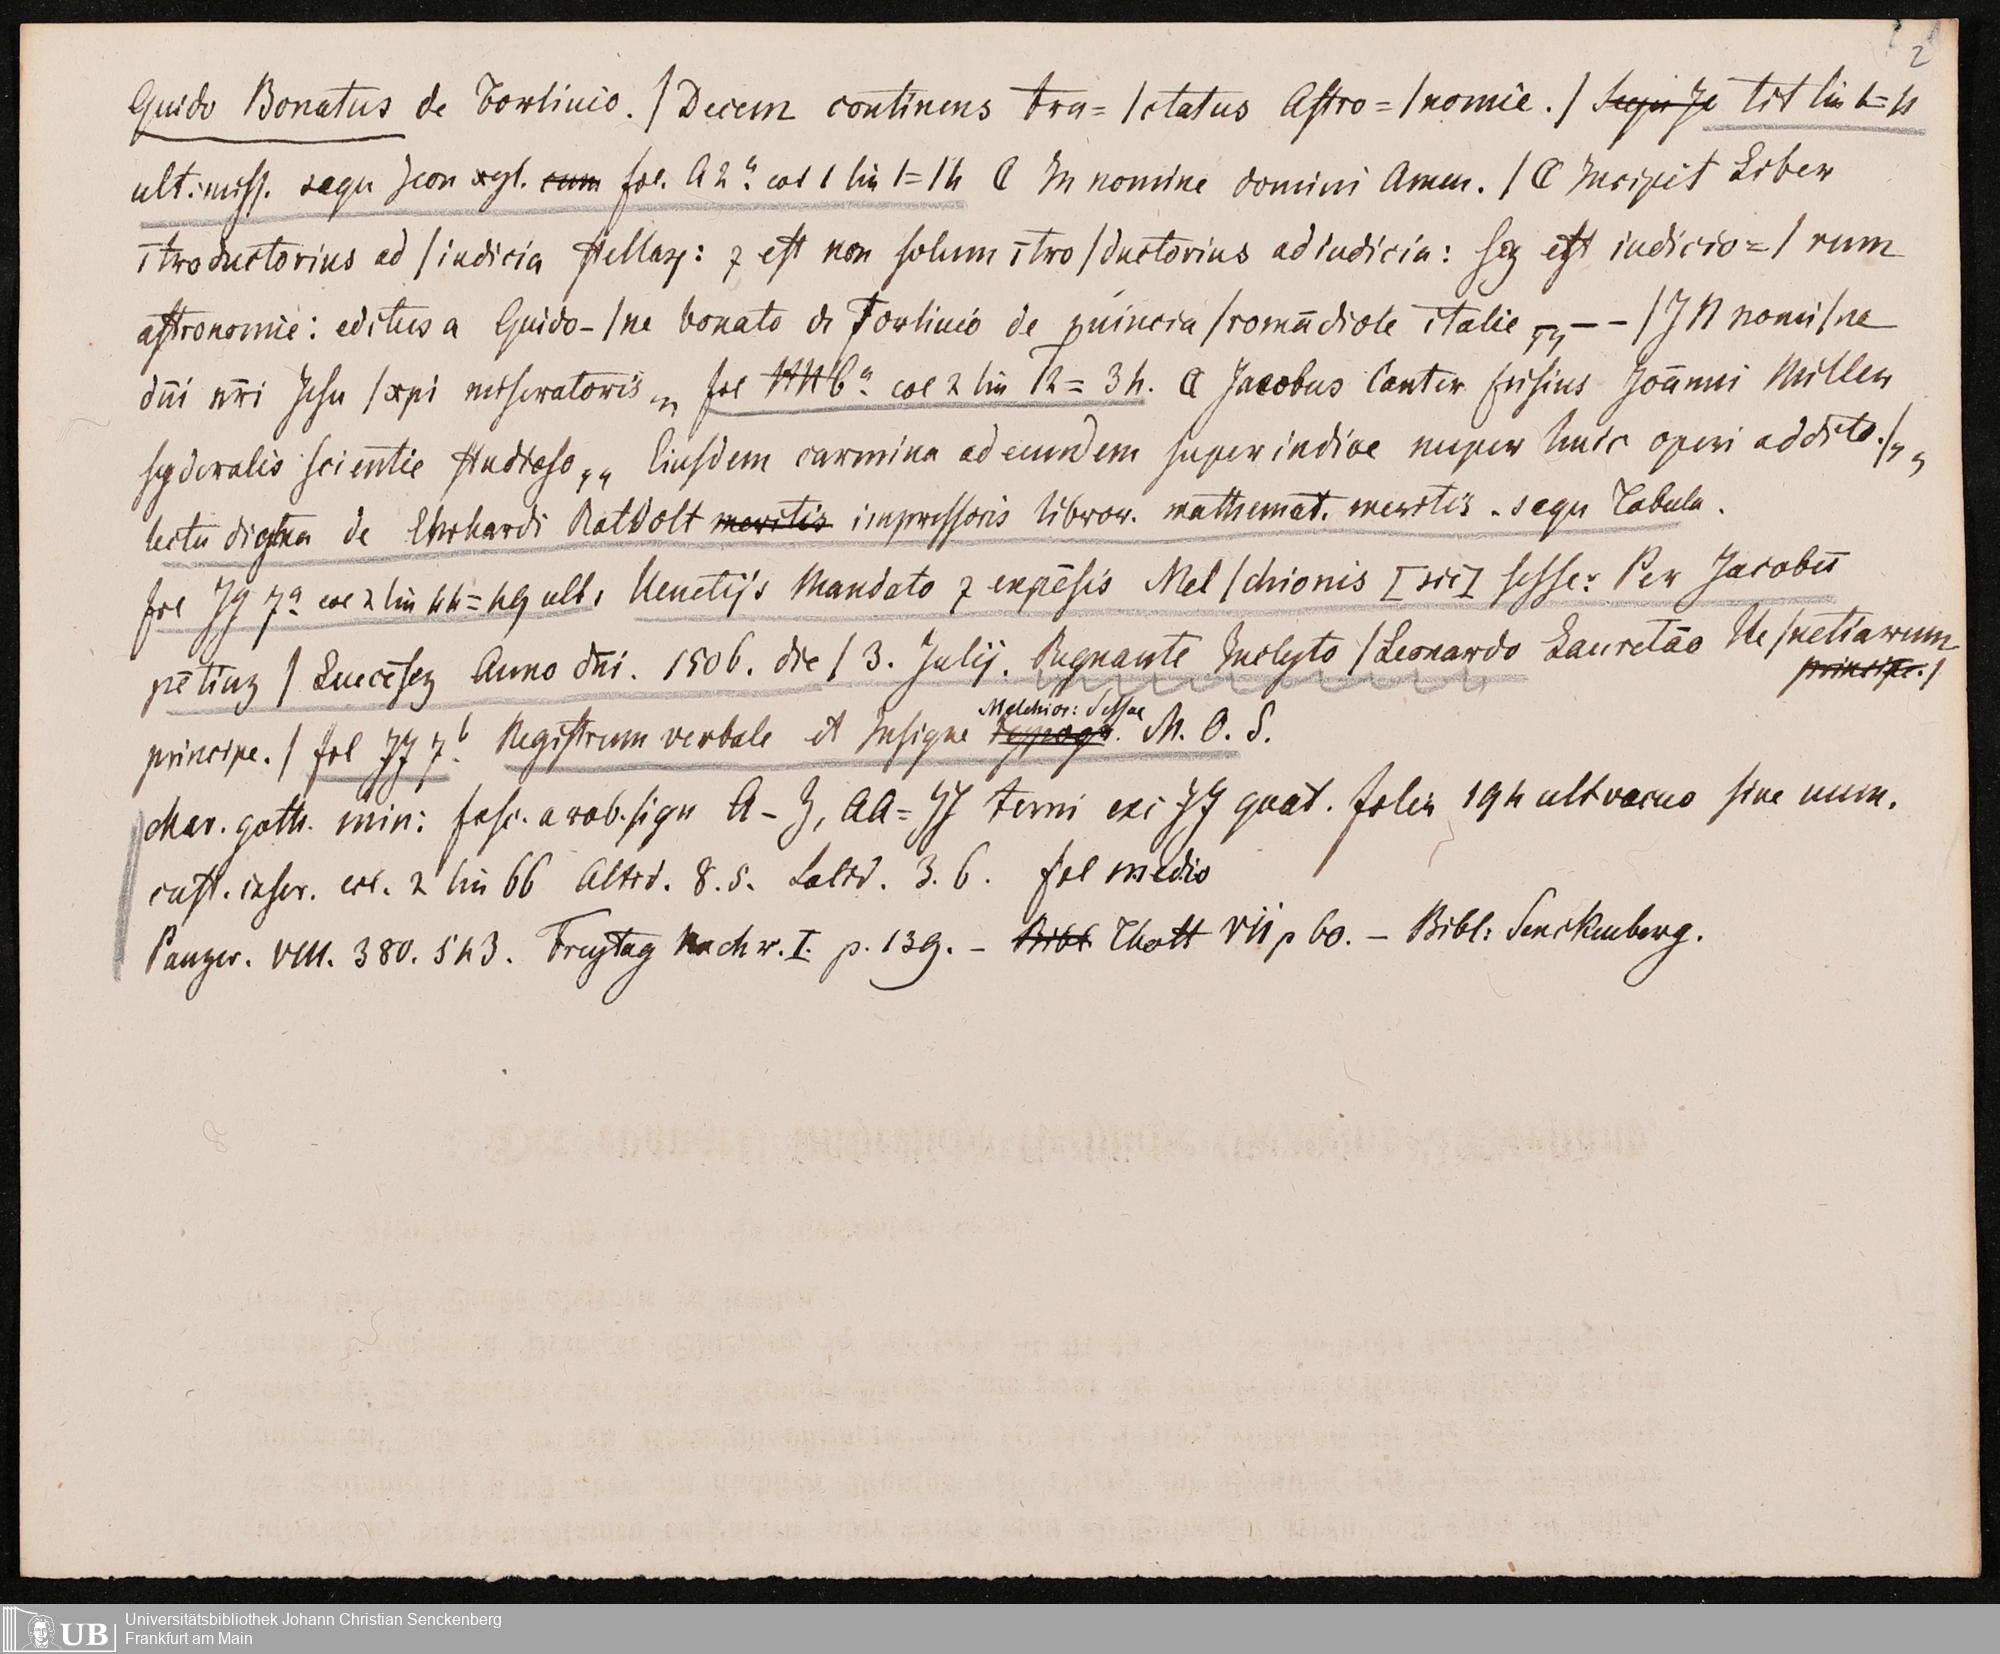 2
Guido Bonatus de Forlivio. / Decem continens tra= / ctatus Astro= / nomie. / tit lin 1=4
ult. miss. sequ Icon xyl. cum fol. A 2a col 1 lin 1=14 ₵ In nomine domini Amen. / ₵ Incipit Liber
ītroductorius ad / iudicia stellaꝝ: ⁊ est non solum ītro / ductorius ad iudicia: sꝫ est iudicio= / rum
astronomie: editus a Guido- / ne bonato de Forlivio de puincia / romādiole italie „ – – / IN nomi / ne
dn̄i nr̄i Jesu / xpi miseratoris „ fol NN 6a col 2 lin 12=34. ₵ Jacobus Canter frisius Joāmni Miller
syderalis scientie studioso „ Eiusdem carmina ad eundem super indice nuper huic operi addito. / „
lectu digna de Ehrhardi Ratdolt meritis impressoris libror. mathemat. meritis . sequ Tabula .
fol JJ 7a col 2 lin 44=49 ult. Uenetijs Mandato ⁊ expēsis Mel / chionis [sic] sesse: Per Jacobū
pētiuꝫ / Luecēseꝫ Anno dn̄i . 1506. die / 3. Julij. Regnante Inclyto / Leonardo Lauretāo Ue / netiarum
principe. /
principe. / fol JJ 7b. Registrum verbale et Insigne Melchior: Sessae M. O. S.
char. goth. min: fasc. arab. sign A – Z, AA = JJ terni exc JJ quat. folia 194 ult vacuo sine num.
cust. inscr. col. 2 lin 66 Altid. 8.5. Latid. 3.6. fol medio
Panzer. VIII. 380. 543. Freytag Nachr. I. p. 139. – Bibl Thott VII p 60. – Bibl: Senckenberg.
UB
Universitätsbibliothek Johann Christian Senckenberg
Frankfurt am Main